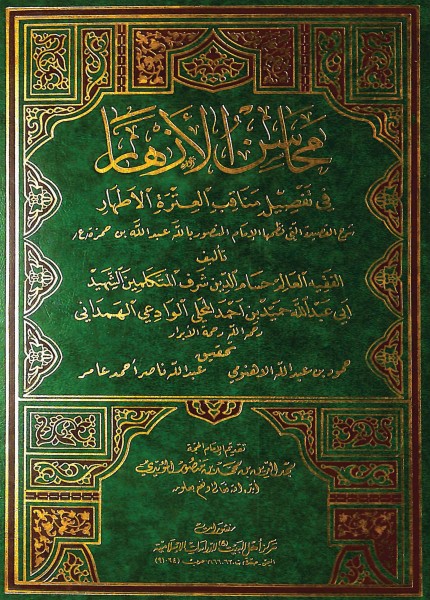 محاسن الأزهار
في تفصيل مناقب العترة الأطهار
شرح القصيدة التي نظمها الإمام المنصور بالله عبد الله بن حمزة (ع)
تأليف
الفقيه العلامة حسام الدين شرف المتكلمين الشهيد
أبي عبد الله حميد بن أحمد المحلي الوادعي الهمداني
رحمه الله رحمة الأبرار
تحقيق
حمود بن عبد الله الاهنومي عبد الله ناصر أحمد عامر
تقديم الإمام الحجة
مجد الدين بن محمد بن منصور المؤيدي
أيده الله تعالى ونفع بعلومه
منشورات
مركز أهل البيت (ع) للدراسات الإسلامية
اليمن - صعدة